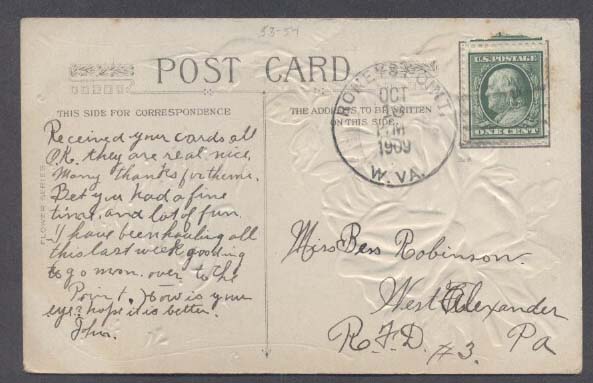 53-54
POST CARD
THIS SIDE FOR CORRESPONDENCE
THE ADDRESS TO BE WRITTEN
ON THIS SIDE
FLOWER SERIES
OCT
PM
1909
W. VA.
U.S. POSTAGE
ONE CENT
Received your cards all
O.K. they are real nice
Many thanks for them.
Bet you had a fine
time, and lot of fun.
I have been hauling all
this last week
to go mon. over to the
Point. How is your
eye? hope it is better.
Miss Bess Robinson.
West Alexander
R.F.D. #3. Pa